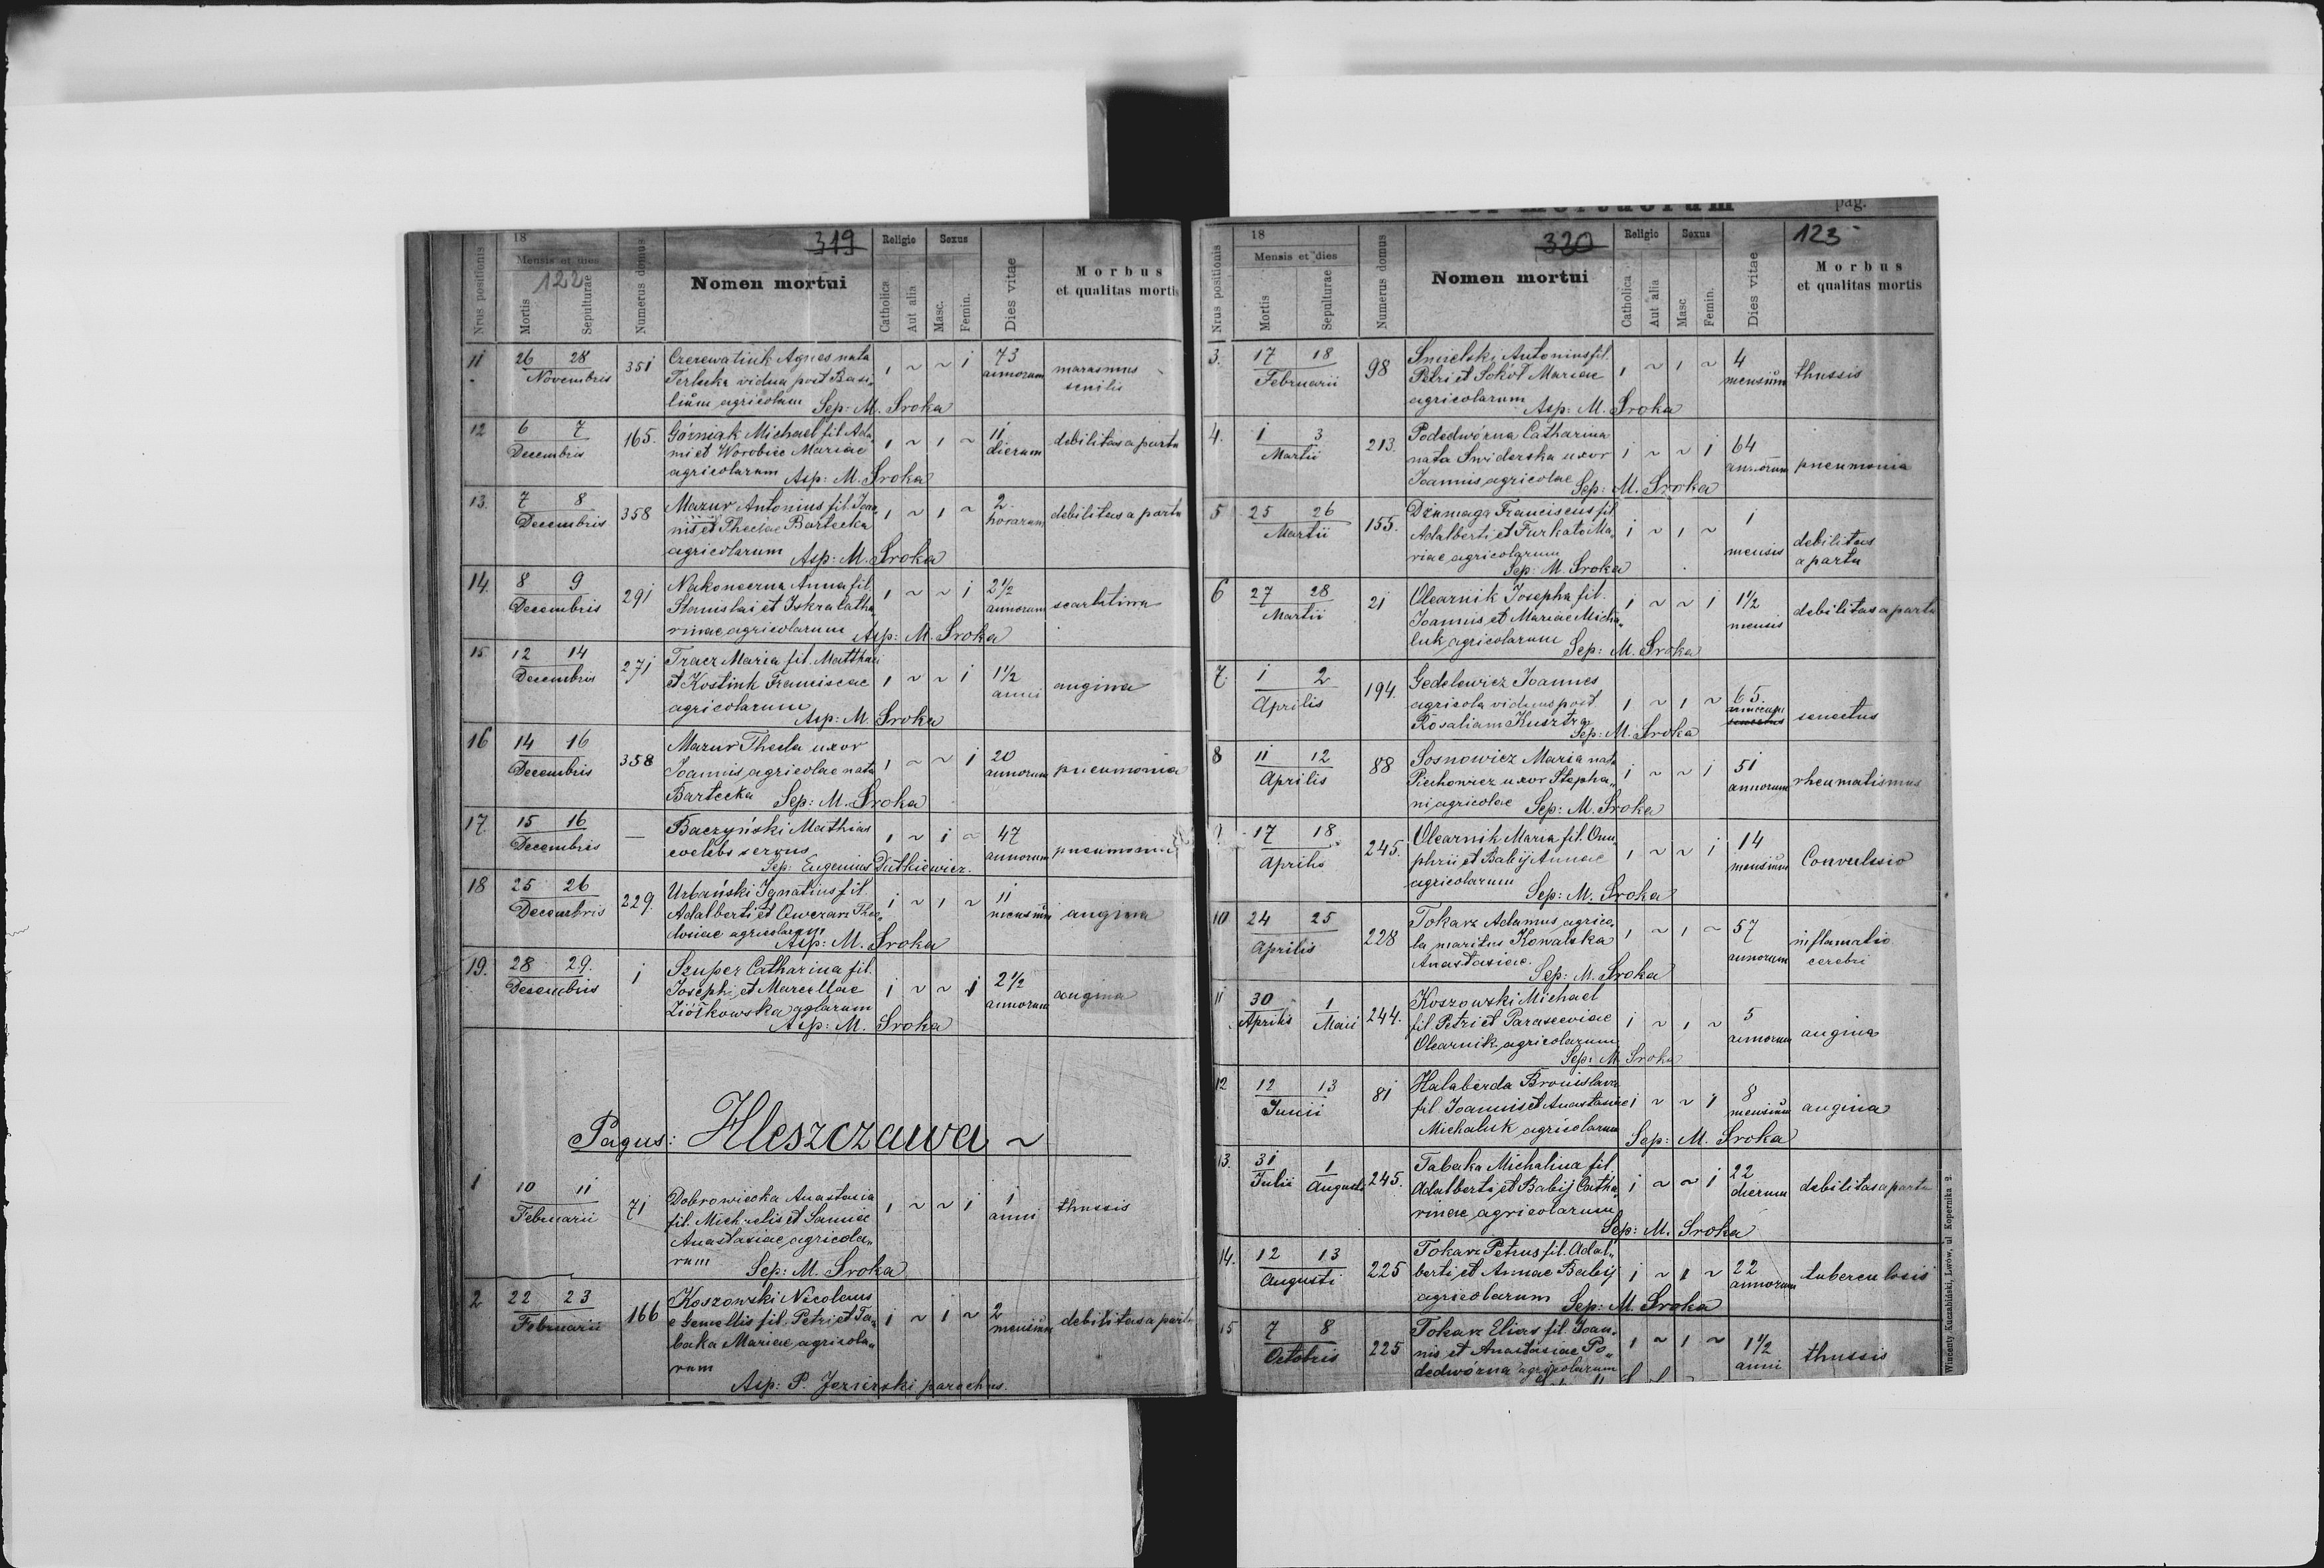 319
18
Mensis et dies
122
Nrus positionis
Mortis
Sepulturae
Numerus domus
Nomen mortui
Religio
Catholica
Aut alia
Sexus
Masc.
Femin.
Dies vitae
Morbus
et qualitas mortis
11 26 28 351 Czerewatiuk Agnes nata 1 ~ ~ 1 73
Novembris Terlecka vidua post Basi„ annorum marasmus
lium agricolam Sep: M. Sroka senilis
12 6 7 165. Górniak Michael fil. Ada„ 1 ~ 1 ~ 11
Decembris mi et Worobiec Mariae dierum debilitas a partu
agricolarum Asp: M. Sroka
13. 7 8 358 Mazur Antonius fil. Joan„ 1 ~ 1 ~ 2
Decembris nis et Theclae Bartecka horarum debilitas a partu
agricolarum Asp: M. Sroka
14. 8 9 291 Nakoneczna Anna fil. 1 ~ ~ 1 2½
Decembris Stanislai et Iskra Catha„ annorum scarlatina
rinae agricolarum Asp: M. Sroka
15 12 14 271 Tracz Maria fil. Matthaei 1½
Decembris et Kostiuk Franciscae 1 ~ ~ 1 anni angina
agricolarum Asp: M. Sroka
16 14 16 358 Mazur Thecla uxor 1 ~ ~ 1 20
Decembris Joannis agricolae nata annorum pneumonia
Bartecka Sep: M. Sroka
17 15 16 — Baczyński Mathias 1 ~ 1 ~ 47
Decembris coelebs servus annorum pneumonia
Sep: Eugenius Dutkiewicz.
18 25 26 229. Urbański Ignatius fil. 1 ~ 1 ~ 11
Decembris Adalberti et Owczar Theo„ mensium angina
dosiae agricolarum
Asp: M. Sroka
19. 28 29. 1 Szuper Catharina fil.
Decembris Josephi et Marcellae 1 ~ ~ 1 2½ angina
Ziółkowska aglarum annorum
Asp: M. Sroka
Pagus: Hleszczawa ~
1 10 11 71 Dobrowicka Anastasia 1 ~ ~ 1 1 thussis
Februarii fil. Michaelis et anni
Anastasiae agricola„
rum Sep: M. Sroka
2 22 23 166 Koszowski Nicolaus
Februarii e Gemellis fil. Petri et Ta„ 1 ~ 1 ~ 2 debilitas a partu
baka Mariae agricola„ mensium
rum
Asp: P. Jezierski parochus.
Liber mortuorum pag.
320
123
18
Mensis et dies
Nrus positionis
Mortis
Sepulturae
Numerus domus
Nomen mortui
Religio
Catholica
Aut alia
Sexus
Masc
Femin.
Dies vitae
Morbus
et qualitas mortis
3. 17 18 98 Smielski Antonius fil.
Februarii Petri et Sokół Mariae 1 ~ 1 ~ 4 thussis
agricolarum mensium
Asp: M. Sroka
4. 1 3 213. Podedwórna Catharina 64
Martii nata Swiderska uxor 1 ~ ~ 1 annorum pneumonia
Joannis agricolae Sep: M. Sroka
5 25 26 155. Dżumaga Franciscus fil. 1
Martii Adalberti et Furkało Ma„ 1 ~ 1 ~ mensis debilitas
riae agricolarum a partu
Sep: M. Sroka
6 27 28 21 Olearnik Josepha fil. 1 ~ ~ 1 1½
Martii Joannis et Mariae Micha„ mensis debilitas a partu
luk agricolarum Sep: M. Sroka
7. 1 2 194. Gedelewicz Joannes
Aprilis agricola viduus post 1 ~ 1 ~ 65. senectus
Rosaliam Kusztra
Sep: M. Sroka
8 11 12 88 Sosnowicz Maria nata
Aprilis Piechowicz uxor Stepha„ 1 ~ ~ 1 51 rheumatismus
ni agricolae annorum
Sep: M. Sroka
17 18 245. Olearnik Maria fil. Onu„
Aprilis phrii et Babij Annae 1 ~ ~ 1 14 Convulsio
agricolarum mensium
Sep: M. Sroka
10 24 25 228 Tokarz Adamus agrico„
Aprilis la maritus Kowalska 1 ~ 1 ~ 57 inflamatio
Anastasiae. annorum cerebri
Sep: M. Sroka
11 30 1 244. Koszowski Michael
Aprilis Maii fil. Petri et Parasceviae 1 ~ 1 ~ 5 angina
Olearnik agricolarum annorum
Sep: M. Sroka
12 12 13 81 Halaberda Bronislava
Junii fil. Joannis et Anastasiae 1 ~ ~ 1 8 angina
Michaluk agricolarum mensium
Sep: M. Sroka
13. 31 1 245. Tabaka Michalina fil.
Julii Augusti Adalberti et Babij Catha„ 1 ~ ~ 1 22 debilitas a partu
rinae agricolarum dierum
Sep: M. Sroka
14. 12 13 225 Tokarz Petrus fil. Adal„
Augusti berti et Annae Babij 1 ~ 1 ~ 22 tuberculosis
agricolarum annorum
Sep: M. Sroka
15 7 8 225 Tokarz Elias fil. Joan„
Octobris nis et Anastasiae Po„ 1 ~ 1 ~ 1½ thussis
dedwórna agricolarum anni
Wincenty Kuczabiński, Lwów, ul. Kopernika 2.